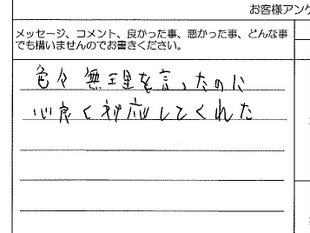 お客様アンケ
メッセージ、コメント、良かった事、悪かった事、どんな事
でも構いませんのでお書きください。
色々無理を言ったのに
心良く対応してくれた